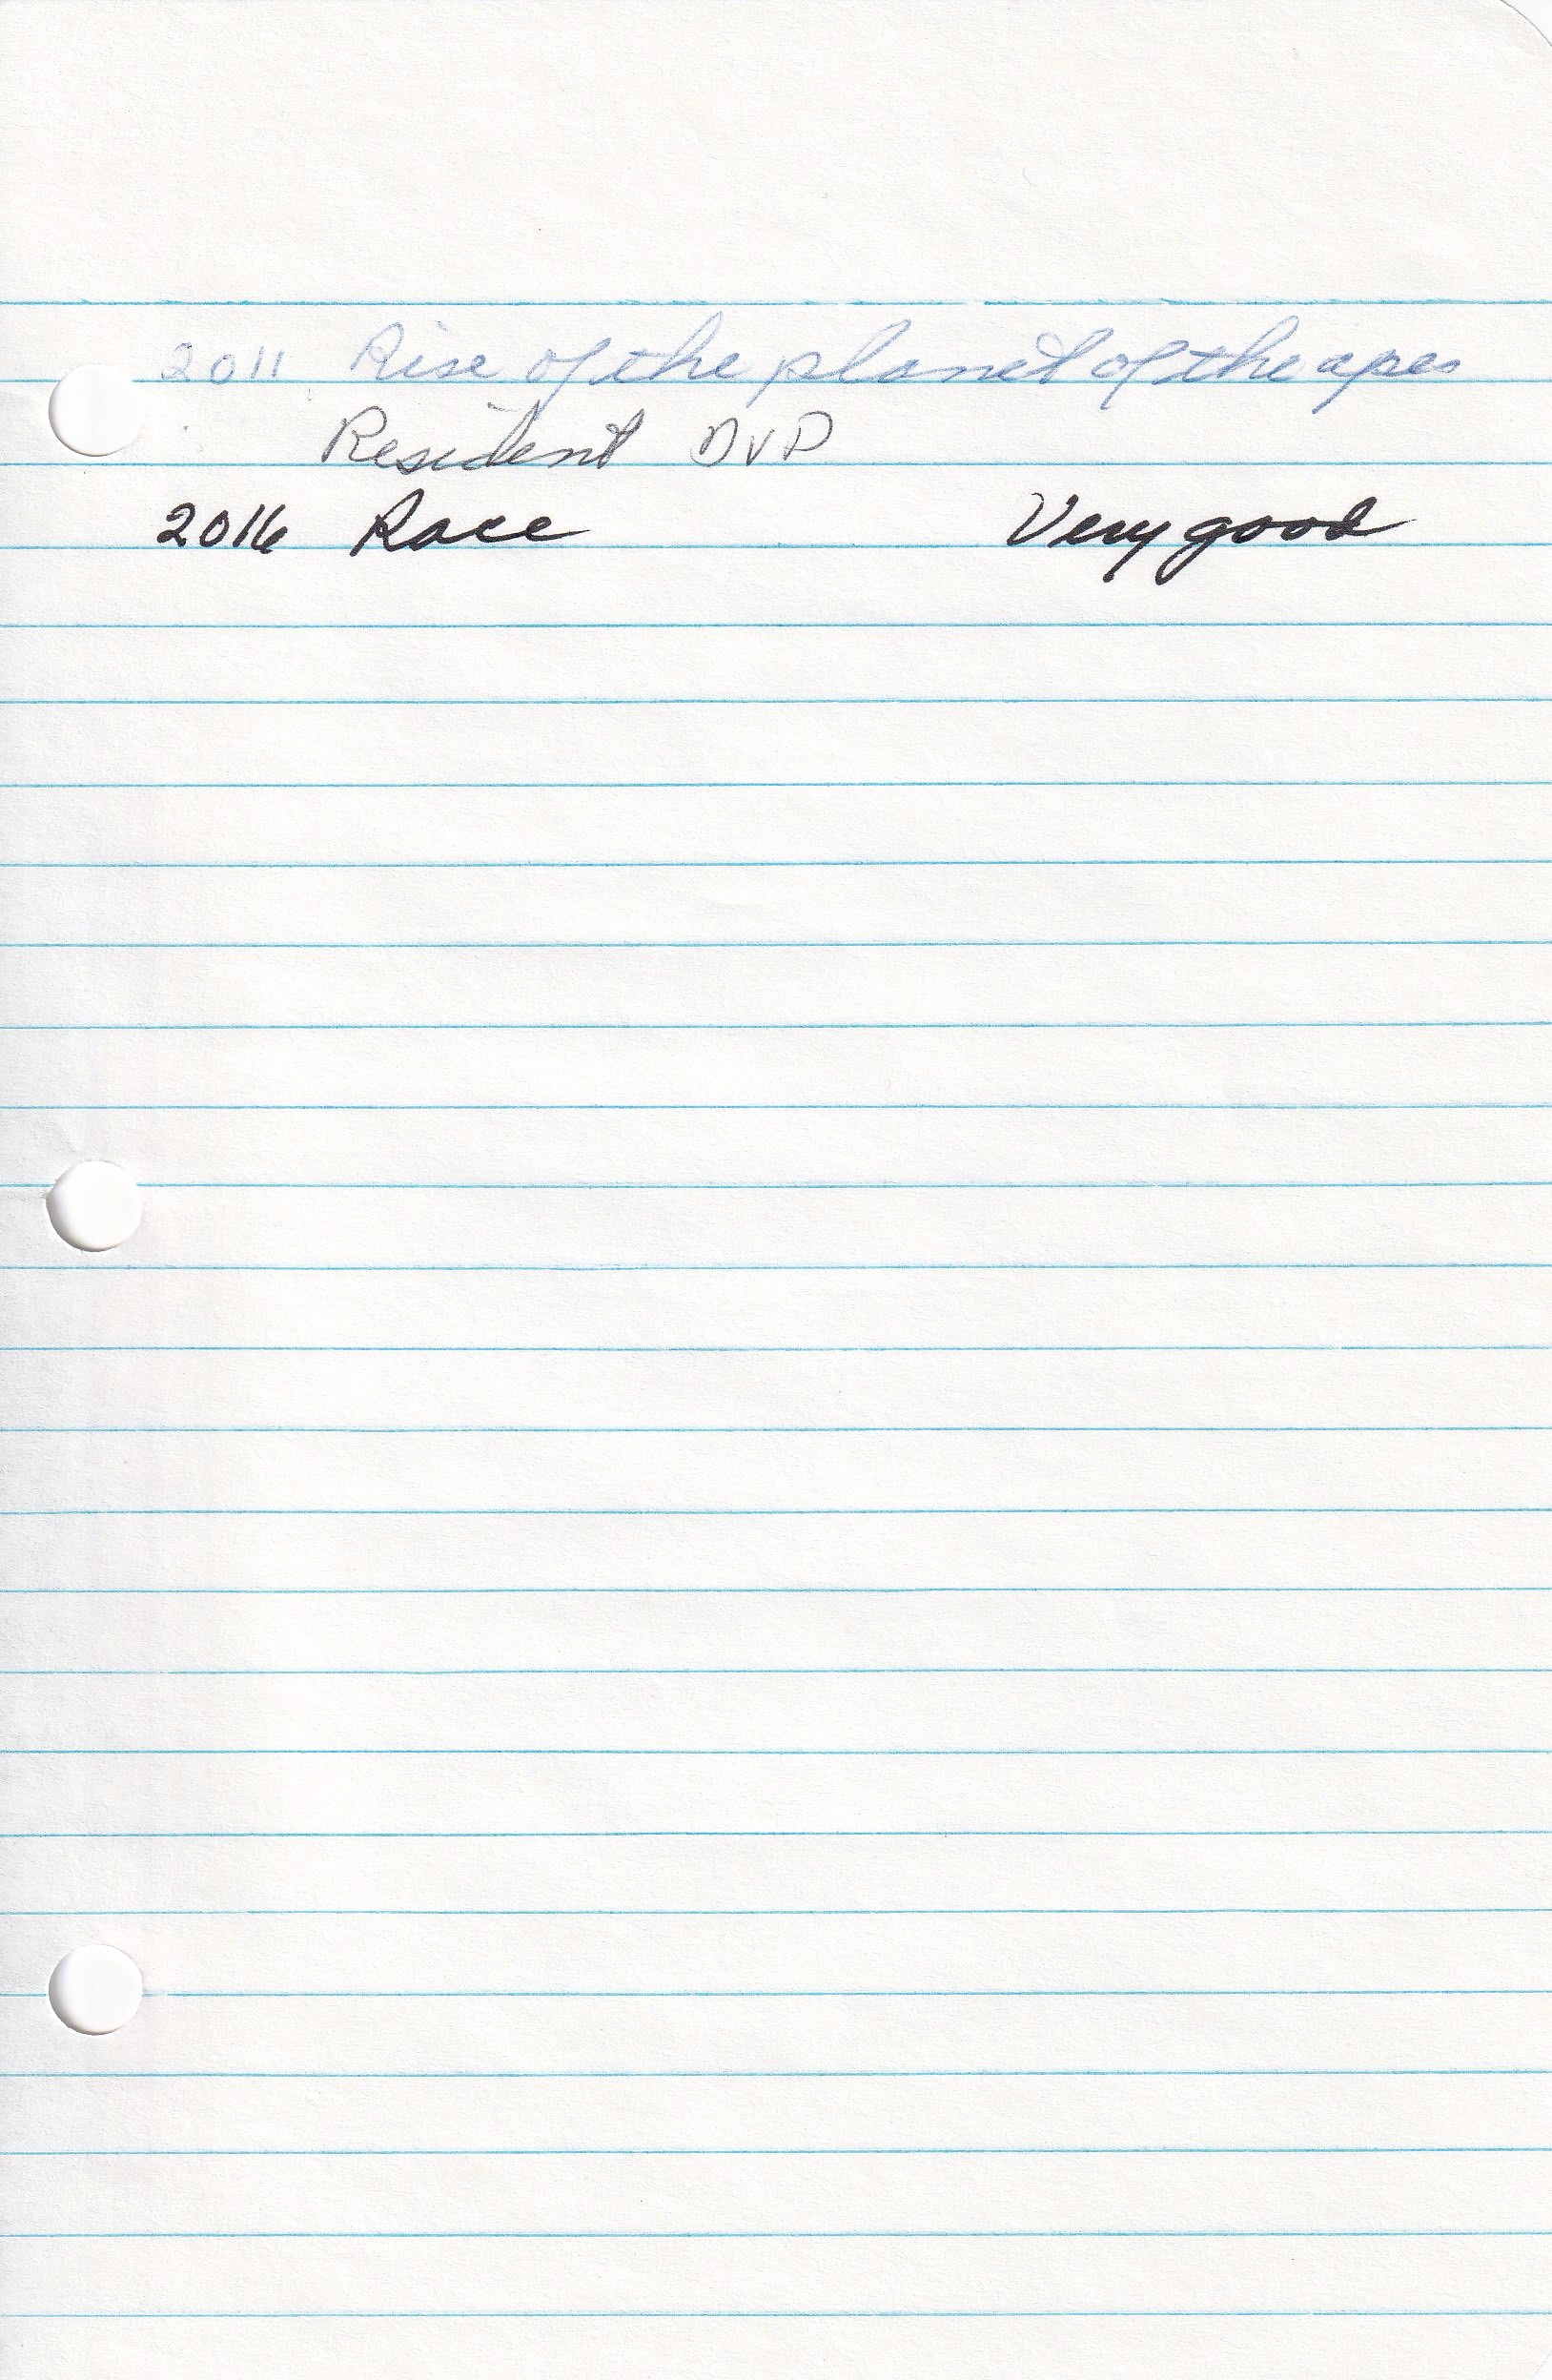 2011 Rise of the planet of the apes
Resident DVD
2016 Race Very good